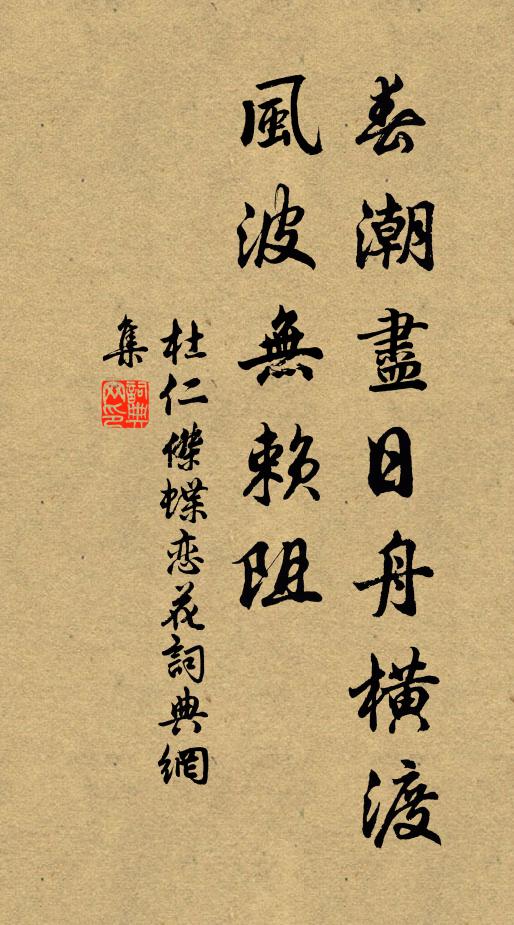 春潮盡日舟橫渡
風波無賴阻
杜仁傑蝶恋花詞典網
集
詞典網印